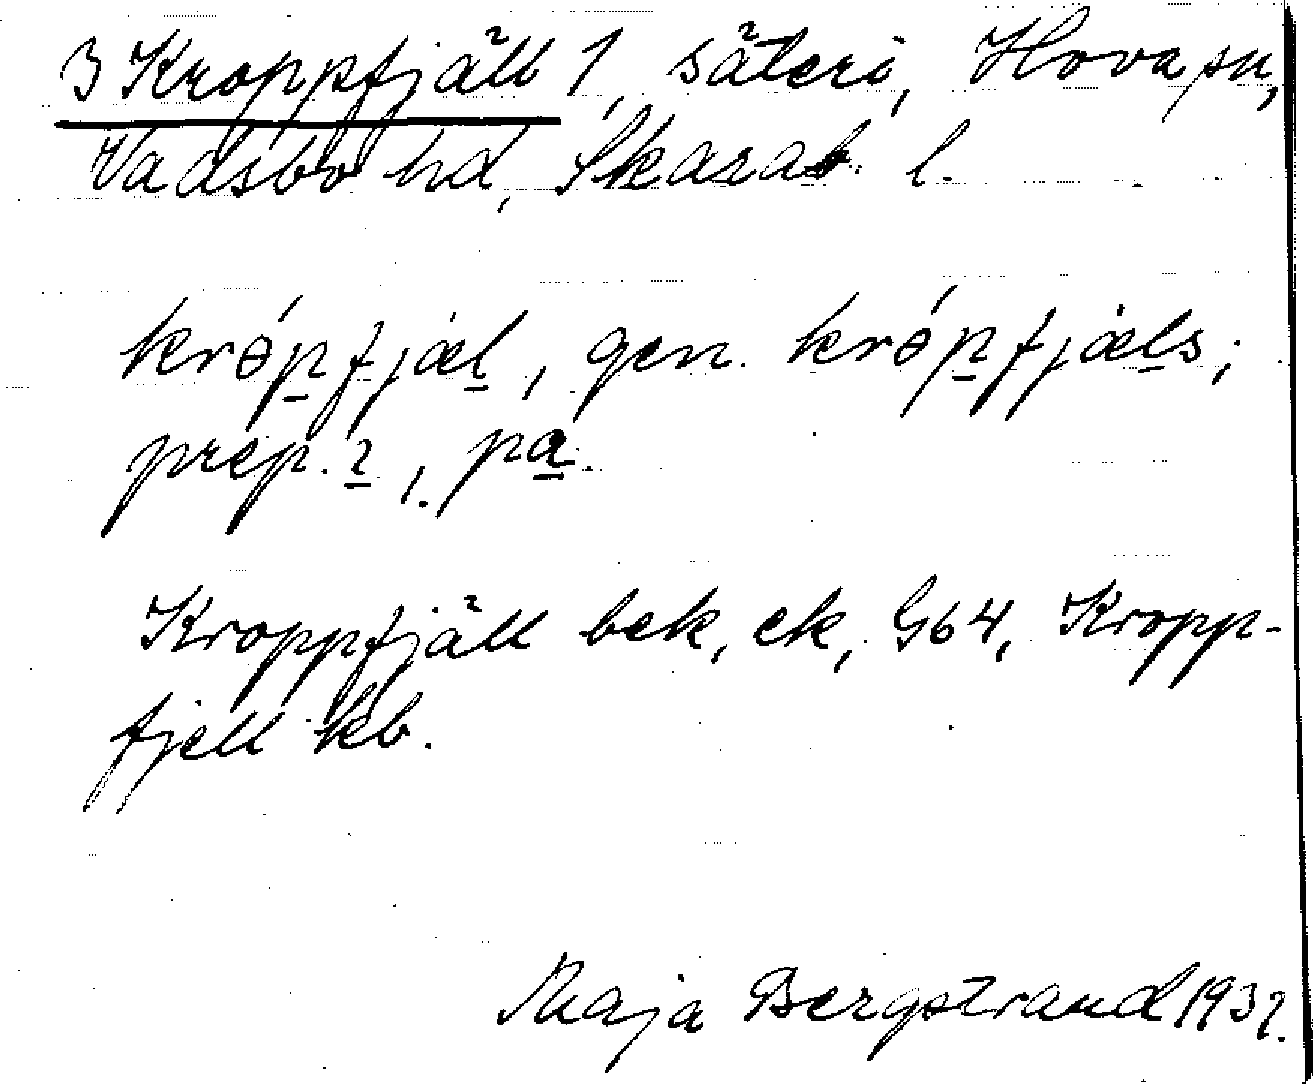 3 Kroppfjäll 1, säteri, Hova sn,
Vadsbo hd, Skarab. l.
krópfjæl, gen. krópfjæls;
prep. 2, pa.
Kroppfjäll bek, ek, G64, Kropp-
fjell kb.
Maja Bergstrand 1932.